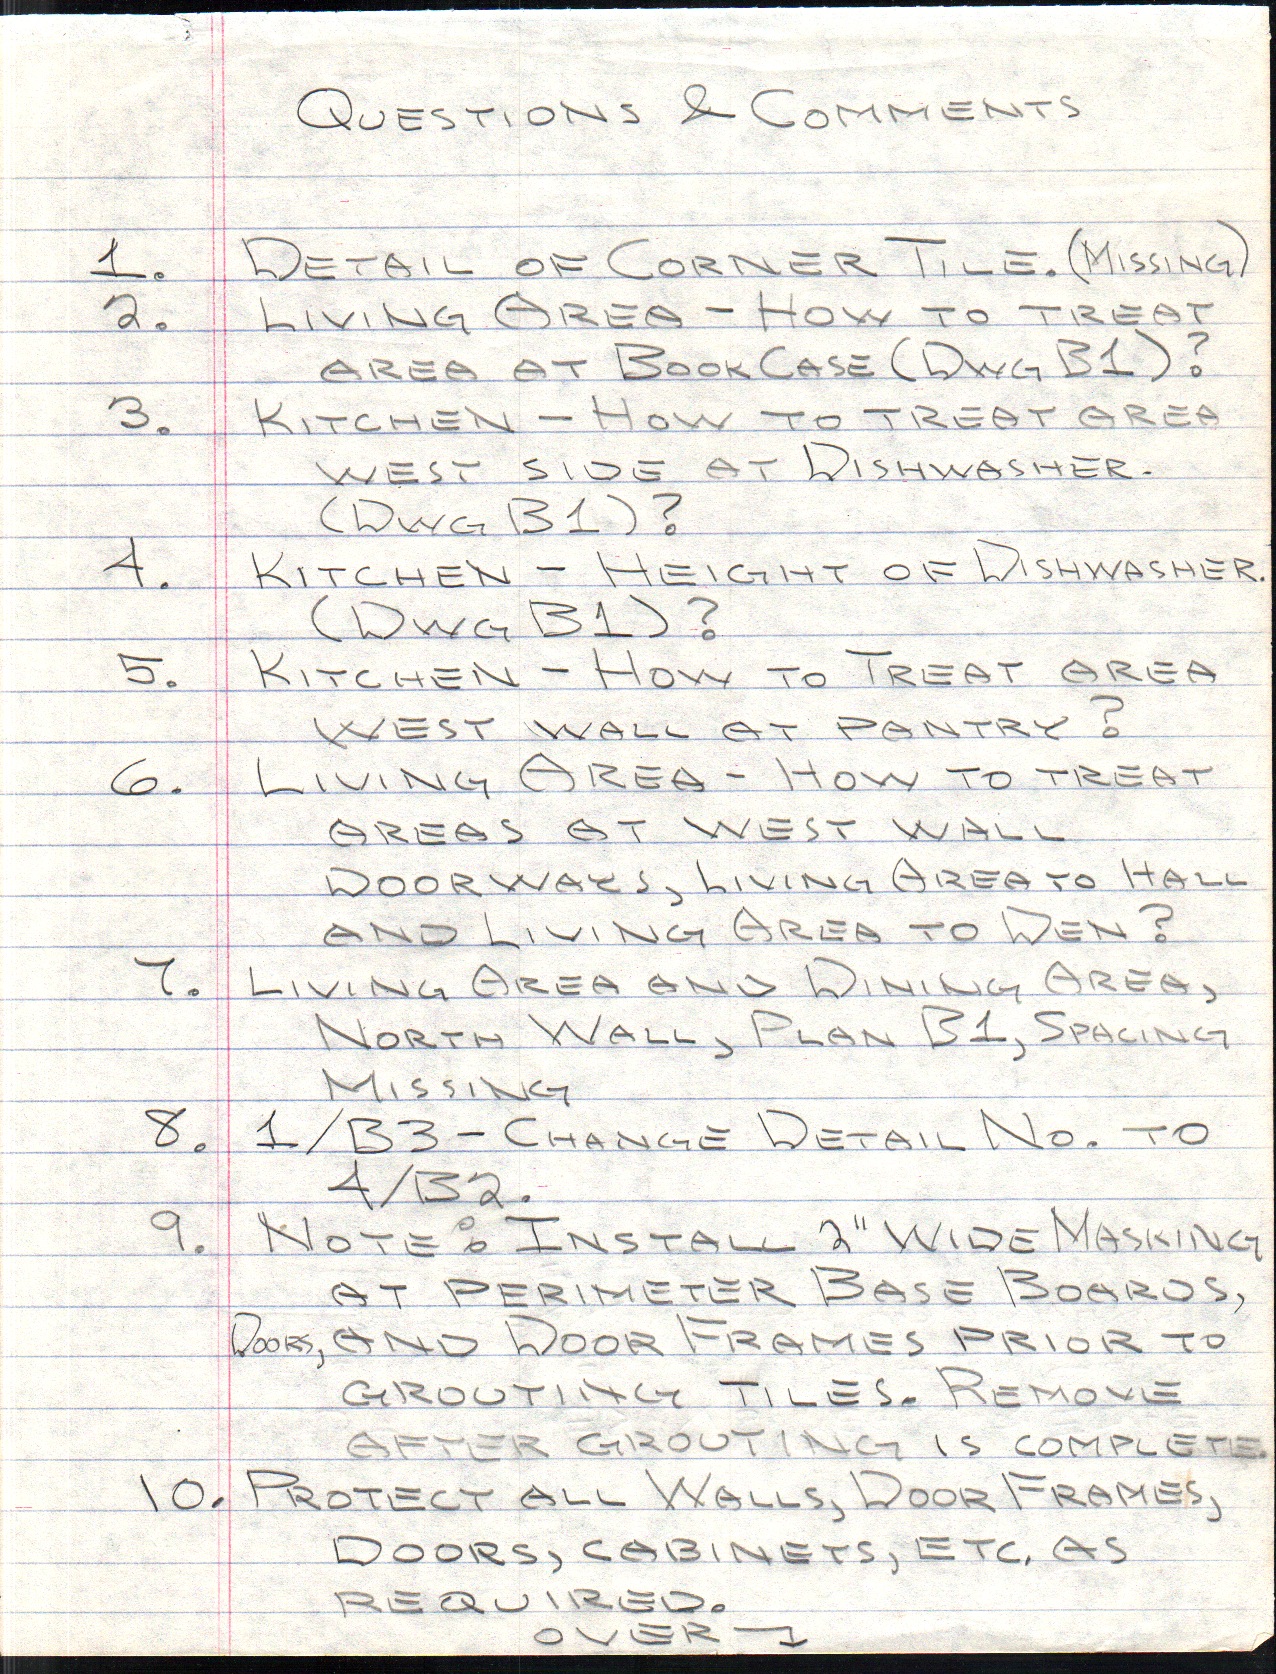 QUESTIONS & COMMENTS
1. DETAIL OF CORNER TILE. (MISSING)
2. LIVING AREA - HOW TO TREAT
AREA AT BOOKCASE (DWG B1)?
3. KITCHEN - HOW TO TREAT AREA
WEST SIDE AT DISHWASHER.
(DWG B1)?
4. KITCHEN - HEIGHT OF DISHWASHER.
(DWG B1)?
5. KITCHEN - HOW TO TREAT AREA
WEST WALL AT PANTRY?
6. LIVING AREA - HOW TO TREAT
AREAS AT WEST WALL
DOORWAYS, LIVING AREA TO HALL
AND LIVING AREA TO DEN?
7. LIVING AREA AND DINING AREA,
NORTH WALL, PLAN B1, SPACING
MISSING
8. 1/B3 - CHANGE DETAIL NO. TO
4/B2.
9. NOTE: INSTALL 2" WIDE MASKING
AT PERIMETER BASE BOARDS,
DOORS, AND DOOR FRAMES PRIOR TO
GROUTING TILES. REMOVE
AFTER GROUTING IS COMPLETE.
10. PROTECT ALL WALLS, DOOR FRAMES,
DOORS, CABINETS, ETC. AS
REQUIRED.
OVER